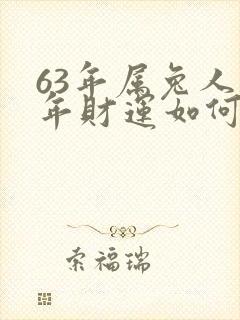 63年属兔人
年财运如何
索福瑞